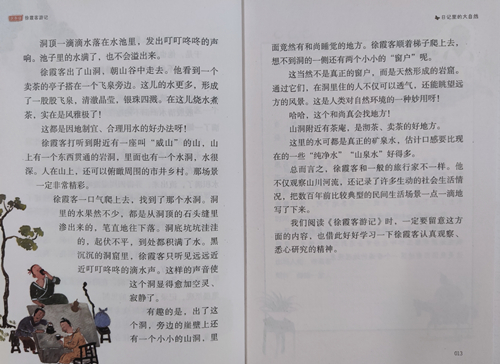 徐霞客游记
洞顶一滴滴水落在水池里，发出叮叮咚咚的声
响。池子里的水满了，也不会溢出来。
徐霞客出了山洞，朝山谷中走去。他看到一个
卖茶的亭子搭在一个飞泉旁边。这儿的水更多，形成
了一股股飞泉，清澈晶莹，银珠四溅。在这儿烧水煮
茶，实在是风雅极了！
这都是因地制宜、合理用水的好办法呀！
徐霞客打听到附近有一座叫“威山”的山，山
上有一个东西贯通的岩洞，里面也有一个水洞，水很
深。人在山上，还可以俯瞰周围的市井乡村。那场景
一定非常精彩。
徐霞客一口气爬上去，找到了那个水洞，洞
里的水果然不少，都是从洞顶的石头缝里
渗出来的，笔直地往下落。洞底坑坑洼洼
的，起伏不平，到处都积满了水。黑
沉沉的洞窟里，徐霞客只听见远远近
近叮叮咚咚的滴水声。这样的声音使
这个洞显得愈加空灵、
寂静了。
有趣的是，出了这
个洞，旁边的崖壁上还
有一个小小的山洞，里
日记里的大自然
面竟然有和尚睡觉的地方。徐霞客顺着梯子爬上去，
想不到洞的一侧还有两个小小的“窗户”呢。
这当然不是真正的窗户，而是天然形成的岩窟。
通过它们，在洞里住的人不仅可以透气，还能眺望远
方的风景。这是人类对自然环境的一种妙用呀！
哈哈，这个和尚真会找地方！
山洞附近有茶庵，是沏茶、卖茶的好地方。
这里的水可都是真正的矿泉水，估计口感要比现
在的一些“纯净水”“山泉水”好得多。
总而言之，徐霞客和一般的旅行家不一样。他
不仅观察山川河流，还记录了许多生动的社会生活情
况，把数百年前比较典型的民间生活场景一点一滴地
写了下来。
我们阅读《徐霞客游记》时，一定要留意这方
面的内容，也借此好好学习一下徐霞客认真观察、
悉心研究的精神。
013